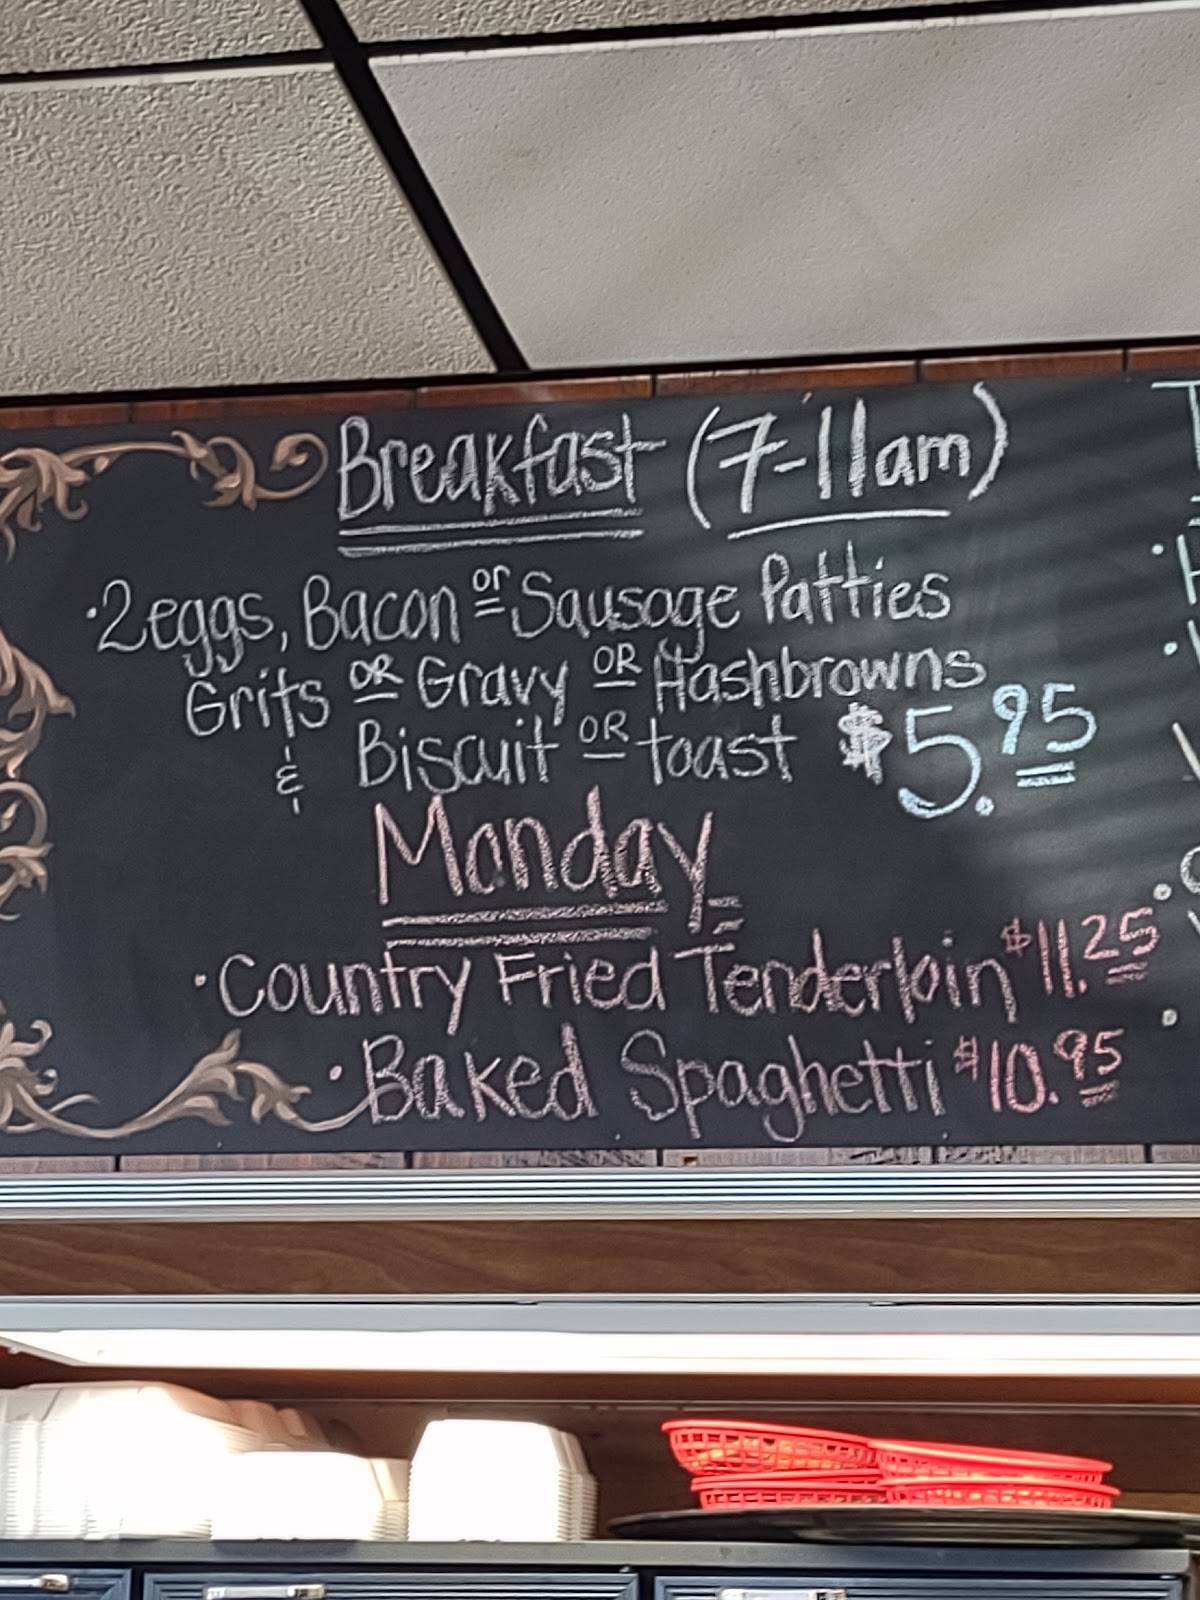 Breakfast (7-11am)
·2eggs, Bacon or Sausage Patties
Grits OR Gravy OR Hashbrowns
& Biscuit OR toast $5.95
Monday
·Country Fried Tenderloin $11.25
·Baked Spaghetti $10.95